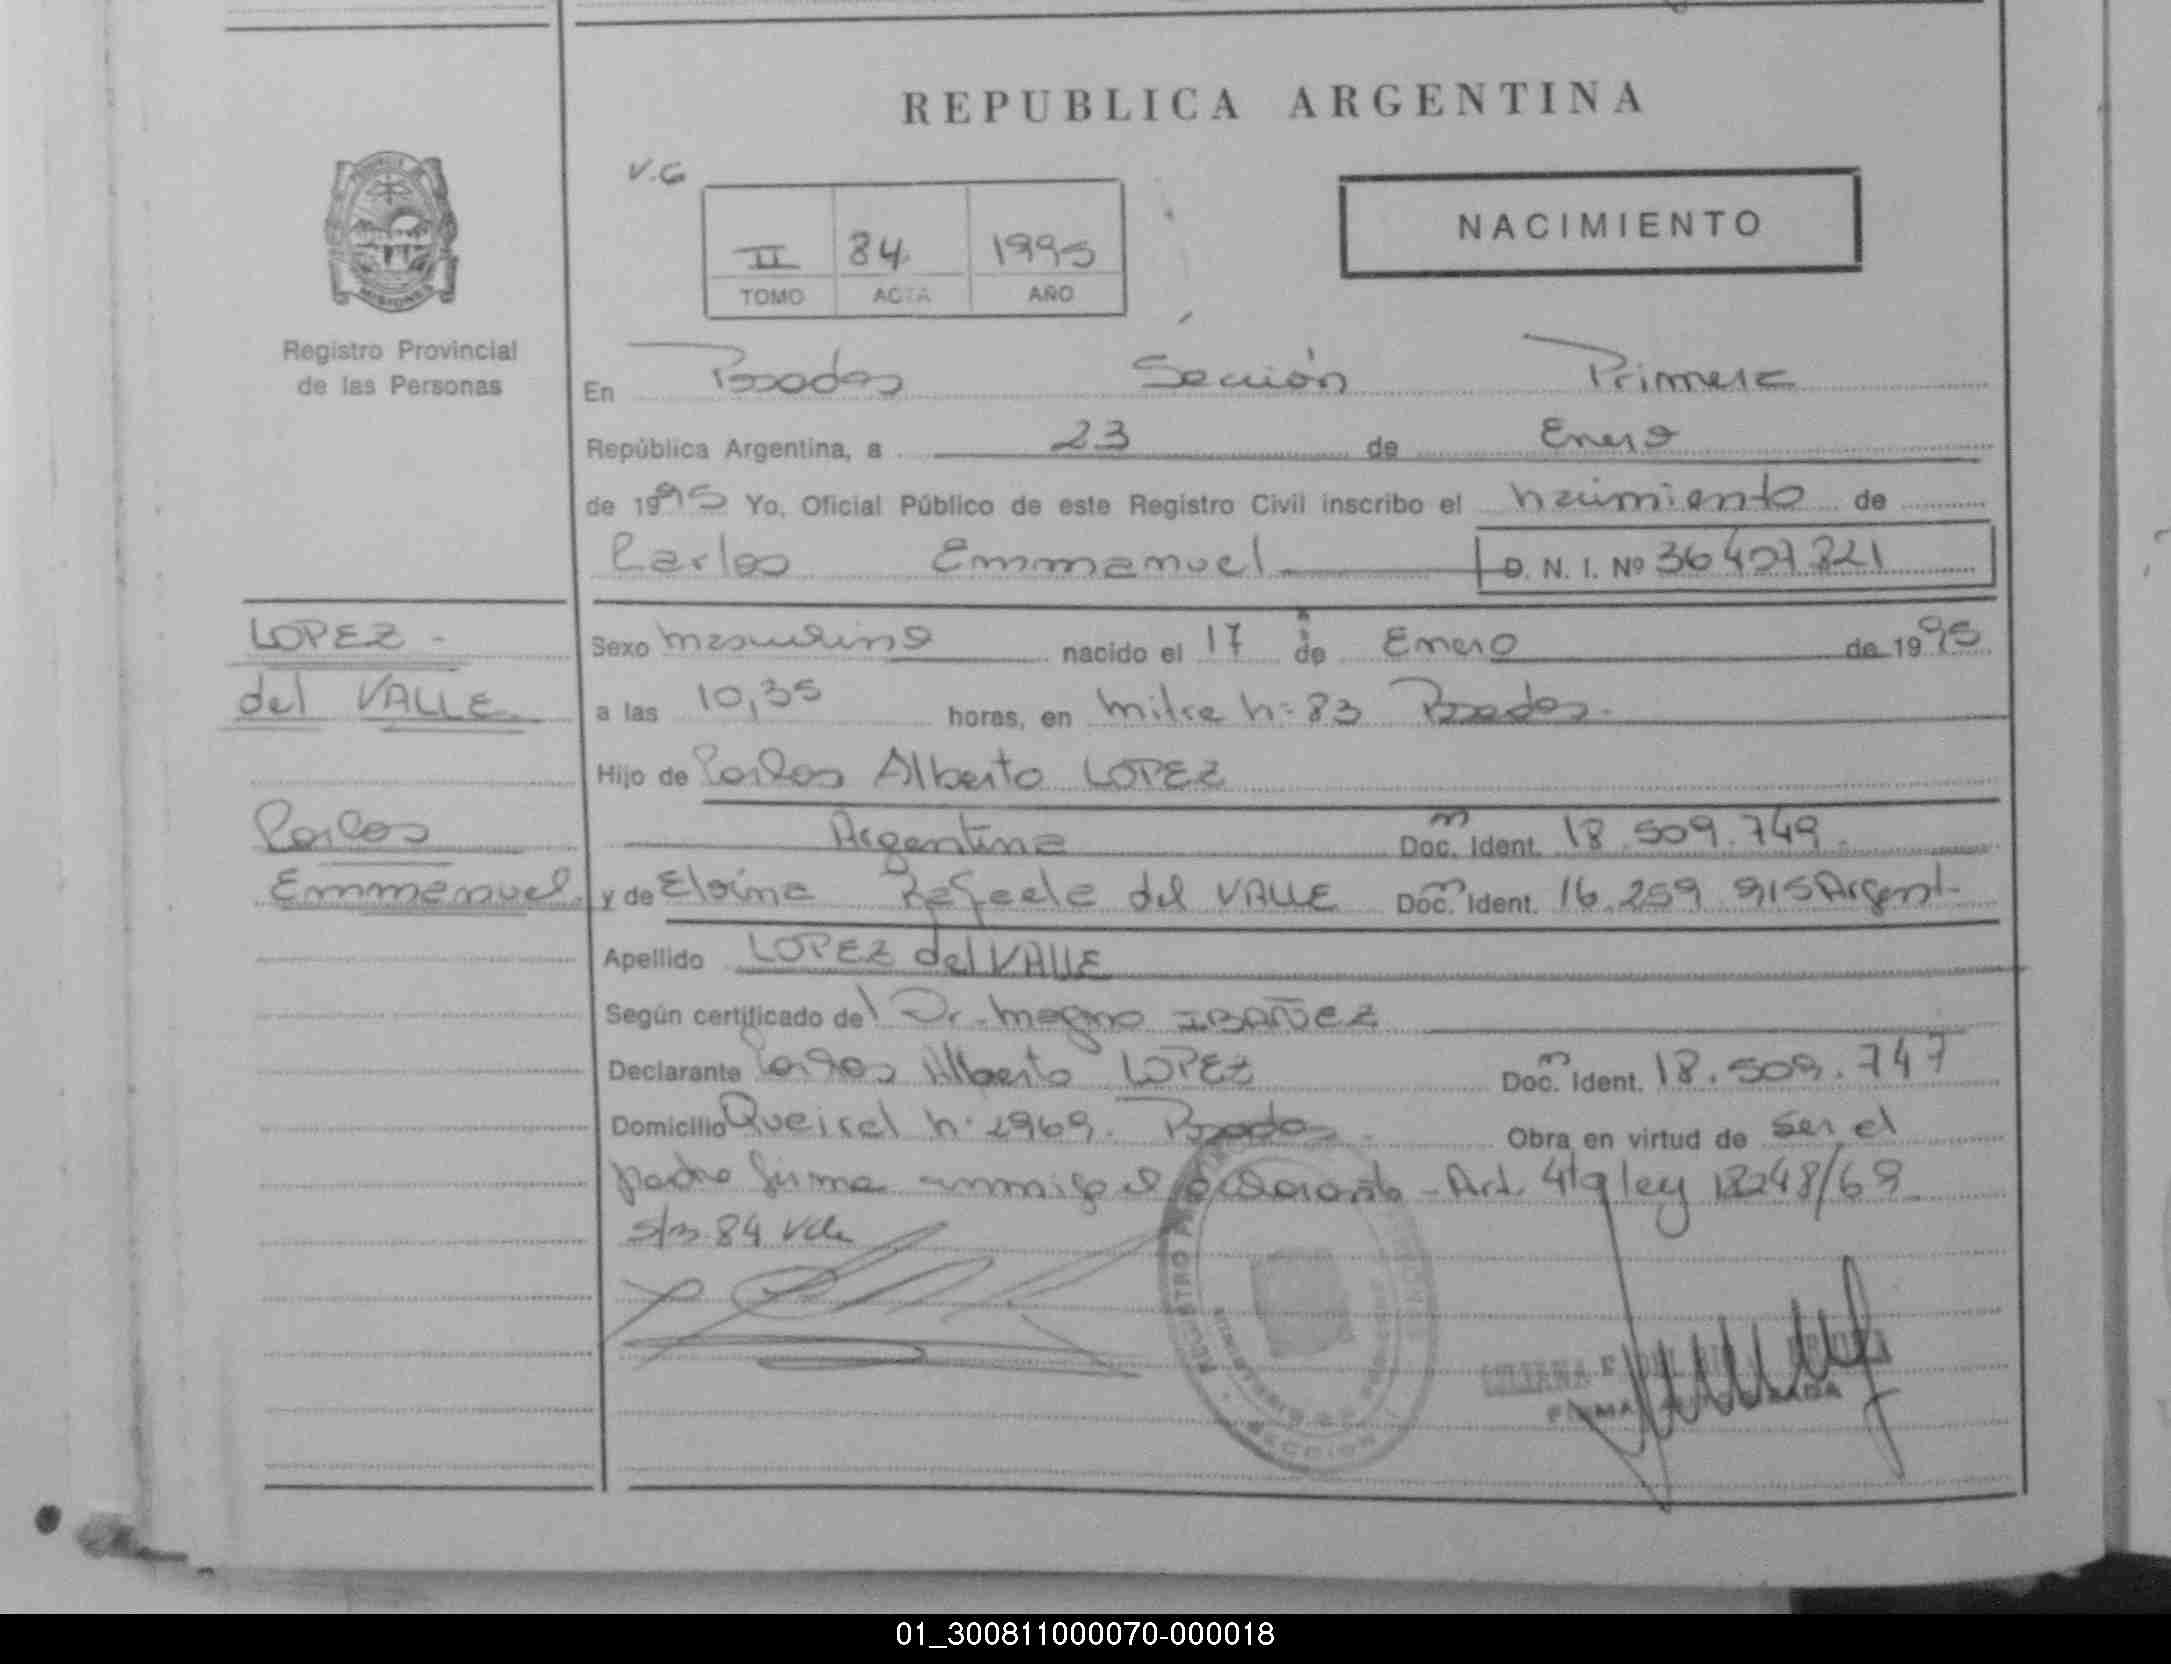 REPUBLICA ARGENTINA
V.G
NACIMIENTO
II 84 1995
TOMO ACTA AÑO
MISIONES
Registro Provincial
de las Personas
En Posadas Sección Primera
República Argentina, a 23 de Enero
de 1995 Yo, Oficial Público de este Registro Civil inscribo el nacimiento de
Carlos Emmanuel D. N. I. Nº 36 407 821
LOPEZ -
del VALLE
Carlos
Emmanuel
Sexo masculino nacido el 17 de Enero de 1995
a las 10,35 horas, en Mitre nº 83 Posadas.
Hijo de Carlos Alberto LOPEZ
Argentina Doc. Ident. 18.509.749
y de Rafaela del VALLE Doc. Ident. 16.259 915 Argent.
Apellido LOPEZ del VALLE
Según certificado del Dr. Magno IBAÑEZ
Declarante Carlos Alberto LOPEZ Doc. Ident. 18.509.747
Domicilio Queirel nº 2969. Posadas Obra en virtud de ser el
padre firma conmigo el declarante - Art. 4to ley 18248/69
84
REGISTRO
SECCION
FIRMA
01_300811000070-000018